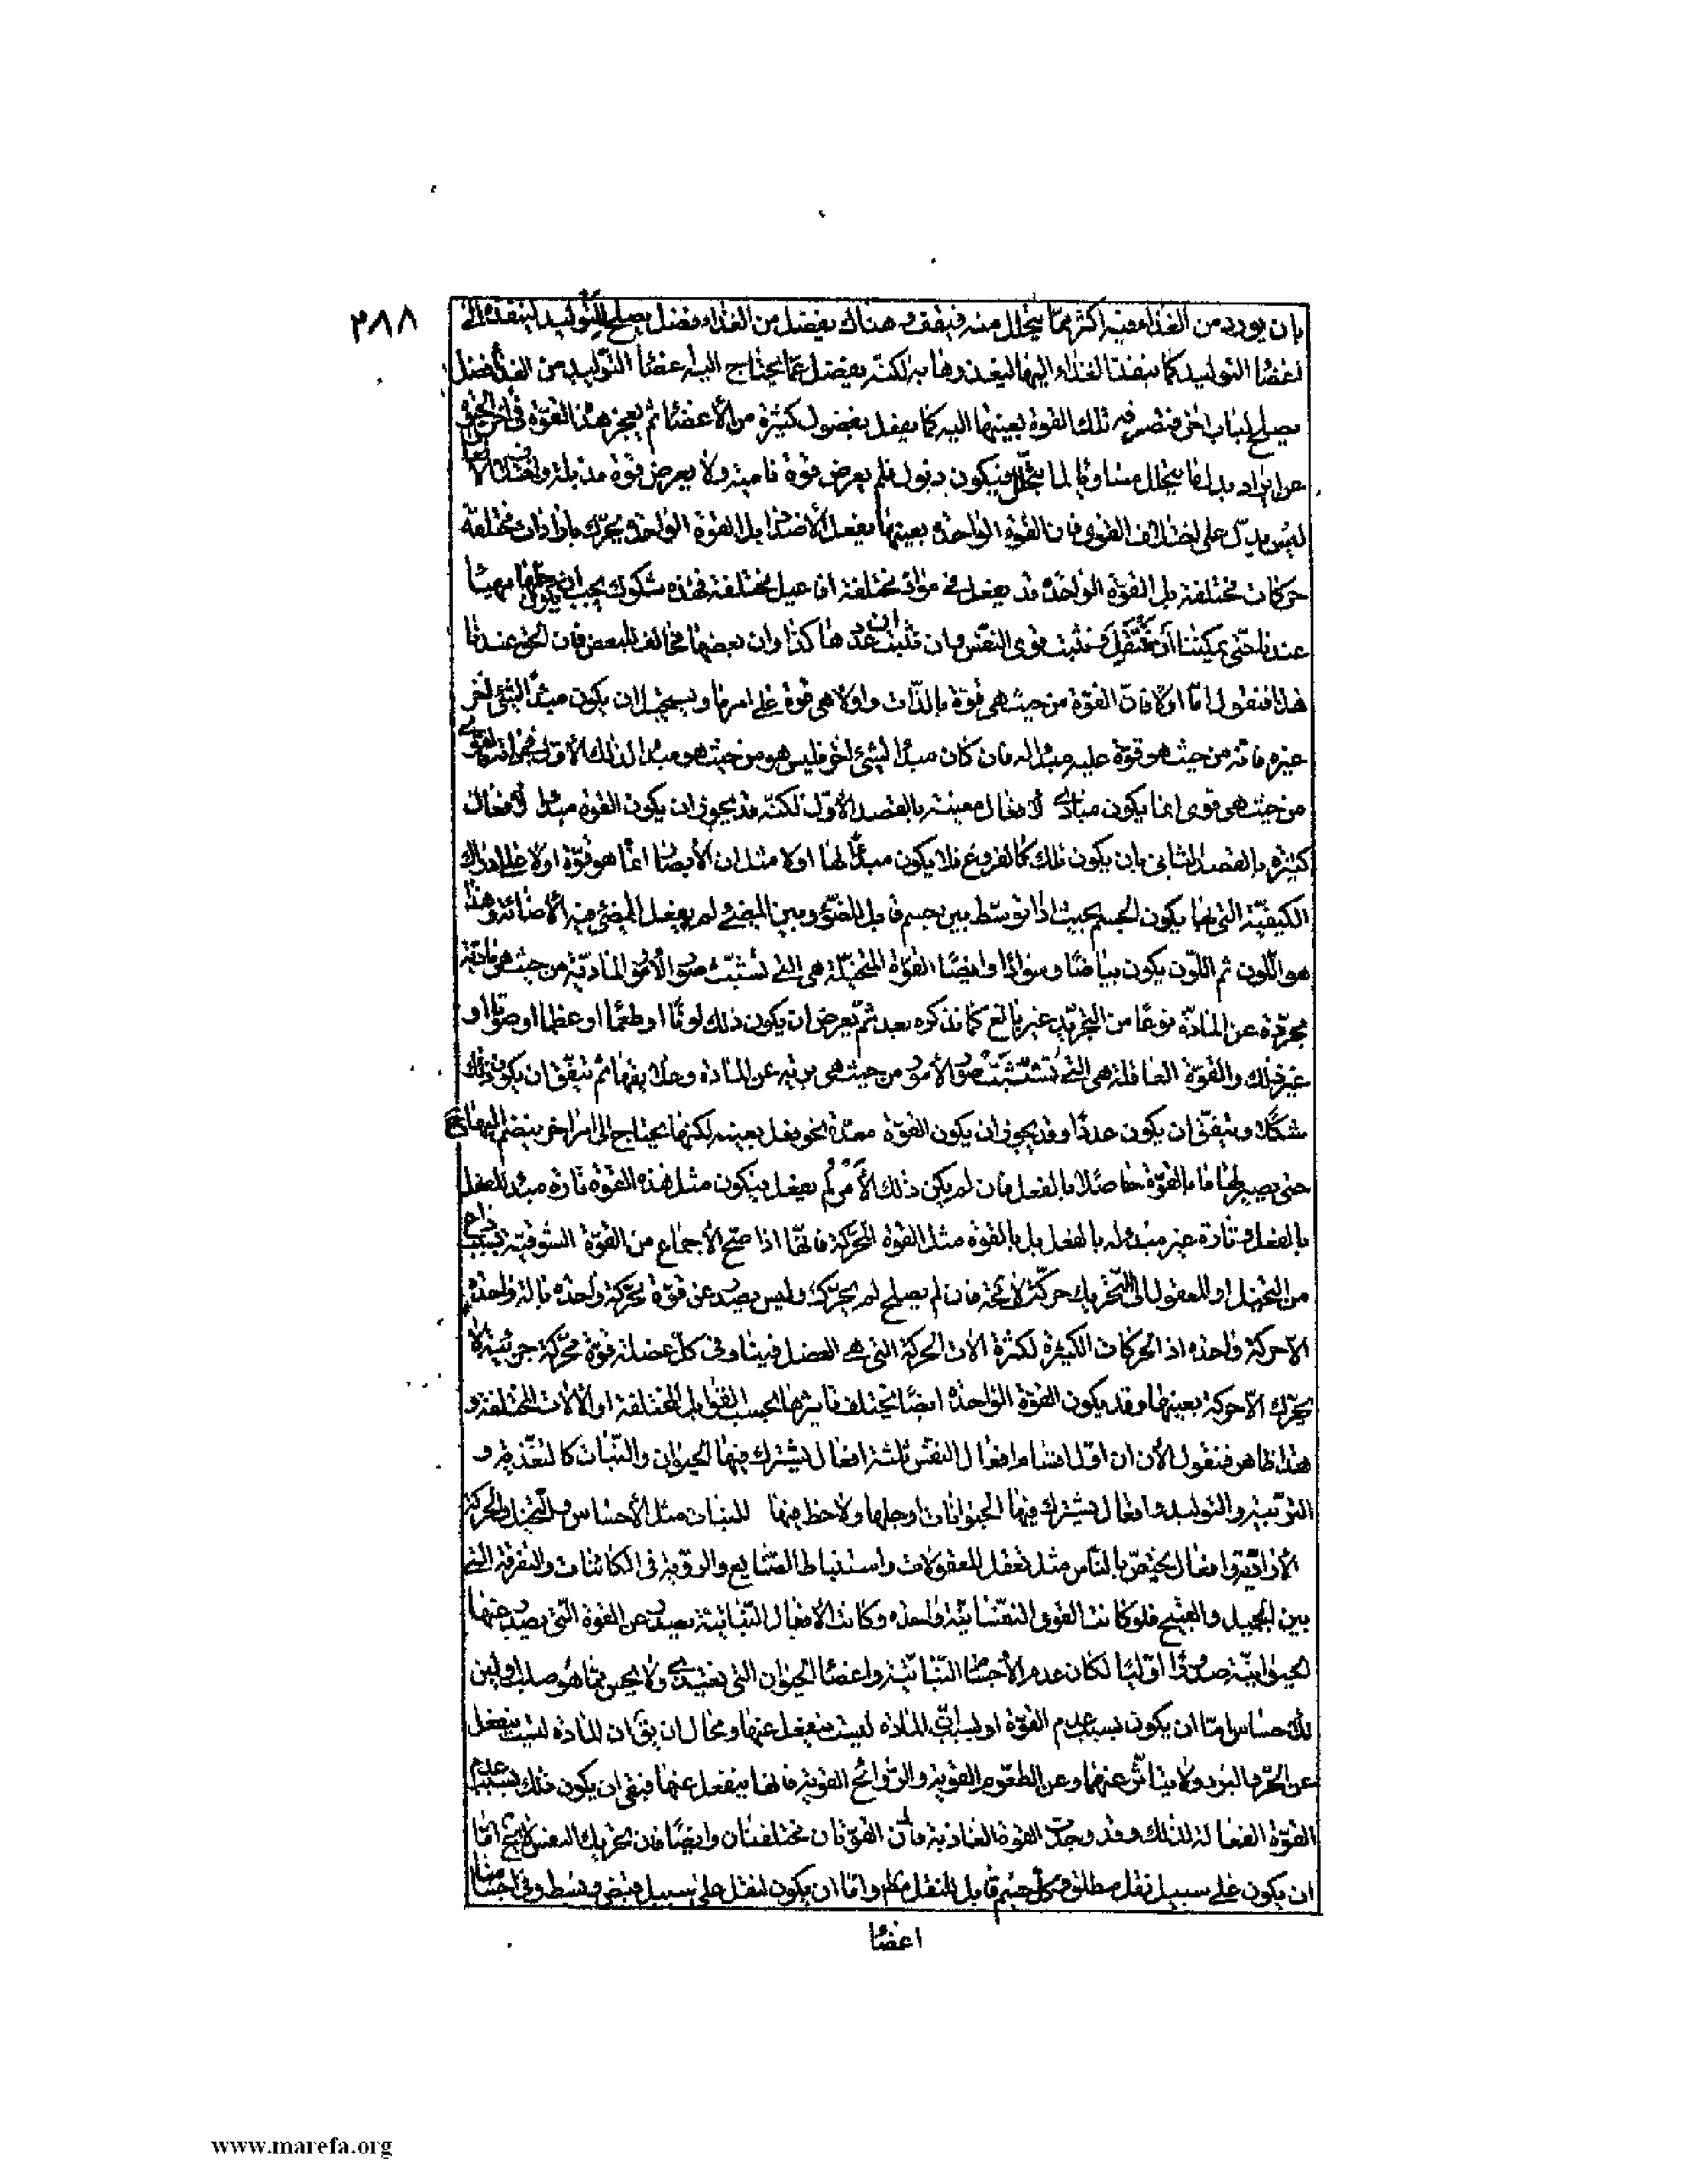 ٢٨٨
بان يورد من الغذاء فيه اكثر مما يتحلل منه فيقف وهناك يفضل من الغذاء فضل يصلح للتوليد لينفذه الى
اعضا التوليد كما ينفذ الغذاء اليها ليغذوها به لكنه يفضل عما يحتاج اليه اعضا التوليد من الغذا فضل
يصلح لباب اخر فتصرفه تلك القوة بعينها اليه كما يفعل بفضول كثيرة من الأعضا ثم يعجز هذه القوة في اخر الحيوة
عن ايراد بدل ما يتحلل مساويا لما يتحلل فيكون ذبول فلم يعرض قوة نامية ولا يعرض قوة مذبلة واختلاف الأفعال
ليس يدل على اختلاف القوى فان القوة الواحدة بعينها يفعل الأضداد بل القوة الواحدة يحرك بارادات مختلفة
حركات مختلفة بل القوة الواحدة قد يفعل في مواد مختلفة افاعيل مختلفة فهذه شكوك يجب ان يكون حلها مهيئا
عندنا حتى يمكننا أن ننتقل فنثبت قوى النفس وان نثبت ان عددها كذا وان بعضها مخالف للبعض فان الحق عندنا
هذا فنقول اما اولا فان القوة من حيث هي قوة بالذات واولا هي قوة على امر ما ويستحيل ان يكون مبدأ لشئ اخر
غيره فانه من حيث هو قوة عليه مبدا له فان كان مبدا لشئ اخر فليس هو من حيث هو مبدا لذلك الأول في ذاته فالقوى
من حيث هي قوى انما يكون مبادى لأفعال معينة بالقصد الأول لكنه قد يجوز ان يكون القوة مبدا لأفعال
كثيرة بالقصد الثاني بان يكون تلك كالفروع فلا يكون مبدأ لها اولا مثل ان الأبصار انما هو قوة اولا على ادراك
الكيفية التي بها يكون الجسم بحيث اذا توسط بين جسم قابل للضوء وبين المضئ لم يفعل المضئ فيه الأضائة وهذا
هو اللون ثم اللون يكون بياضا وسوادا وايضا القوة المتخيلة هي التي تستثبت صور الأمور المادية من حيث هي مادية
مجردة عن المادة نوعا من التجريد غير بالغ كما نذكره بعد ثم يعرض ان يكون ذلك لونا او طعما او عظما او صوتا او
غير ذلك والقوة العاقلة هي التي تستثبت صور الأمور من حيث هي بريه عن المادة وعلائقها ثم يتفق ان يكون ذلك
شكلا ويتفق ان يكون عددا وقد يجوز ان يكون القوة معدة نحو فعل بعينه لكنها يحتاج الى امر اخر ينضم اليها
حتى يصير لها ما بالقوة حاصلا بالفعل فان لم يكن ذلك الأمر لم يفعل فيكون مثل هذه القوة تارة مبدا للفعل
بالفعل وتارة غير مبدء له بالفعل بل بالقوة مثل القوة المحركة فانها اذا صح الأجماع من القوة الشوقية بسبب داع
من التخيل او المعقول الى التحريك حركت لا محة فان لم يصلح لم يحرك وليس يصدر عن قوة محركة واحدة بالة واحدة
الا حركة واحدة اذ الحركات الكثيرة لكثرة الات الحركة التي هي العضل فينا وفي كل عضلة قوة محركة جزئية لا
يحرك الا حركة بعينها وقد يكون القوة الواحدة ايضا يختلف تاثيرها بحسب القوابل المختلفة او الألات المختلفة و
هذا ظاهر فنقول الأن ان اول اقسام افعال النفس ثلثة افعال يشترك فيها الحيوان والنبات كالتغذية و
التربية والتوليد وافعال يشترك فيها الحيوانات اوجلها ولا حظ فيها للنبات مثل الأحساس والتخيل والحركة
الأرادية وافعال يختص بالناس مثل تعقل المعقولات واستنباط الصنايع والروية في الكائنات والتفرقة التي
بين الجميل والقبيح فلو كانت القوى النفسانية واحدة وكانت الافعال النباتية يصدر عن القوة التي يصدر عنها
الحيوانية صدورا اوليا لكان عدم الأجسام النباتية واعضا الحيوان التي يغتذى ولا يحس مما هو صلب او لين
للأحساس اما ان يكون بسبب عدم القوة او بسبب ان المادة ليست ينفعل عنها ومحال ان يق ان المادة ليست ينفعل
عن الحر والبرد ولا يتاثر عنهما وعن الطعوم القوية والروائح القوية فانها ينفعل عنها فبقى ان يكون ذلك بسبب عدم
القوة الفعالة لذلك وقد وجدت القوة الغاذية فاذن القوتان مختلفتان وايضا فان تحريك النفس لا يخ اما
ان يكون على سبيل نقل مطلق فكل جسم قابل للنقل مط واما ان يكون لنقل على سبيل قبض وبسط وفي اجسامنا
اعضا
www.marefa.org